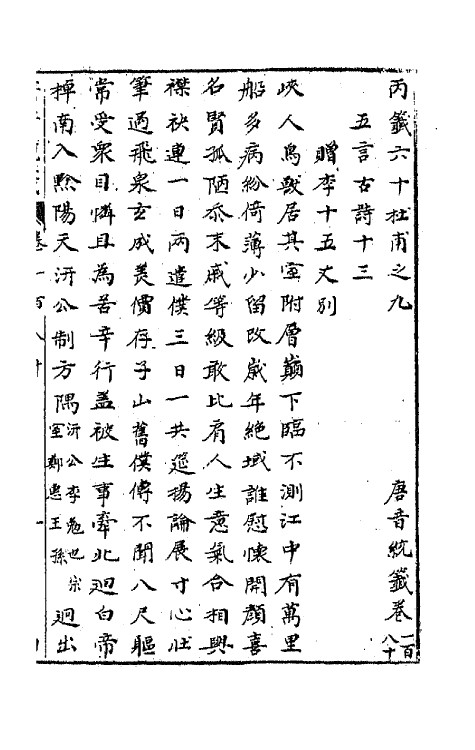 丙籤六十杜甫之九 唐音統籤卷一百八十
五言古詩十三
贈李十五丈別
峽人鳥獸居其室附層巔下臨不測江中有萬里
船多病紛倚薄少留改歲年絶域誰慰懷開顔喜
名賢孤陋忝末戚等級敢比肩人生意氣合相與
襟袂連一日兩遣僕三日一共筵揚論展寸心壯
筆過飛泉玄成羙價存子山舊僕傳不聞八尺軀
常受衆目憐且為苦辛行盖被生事牽北迴白帝
棹南入黔陽天汧公制方隅汧公李勉也宗室鄭惠王孫迴出